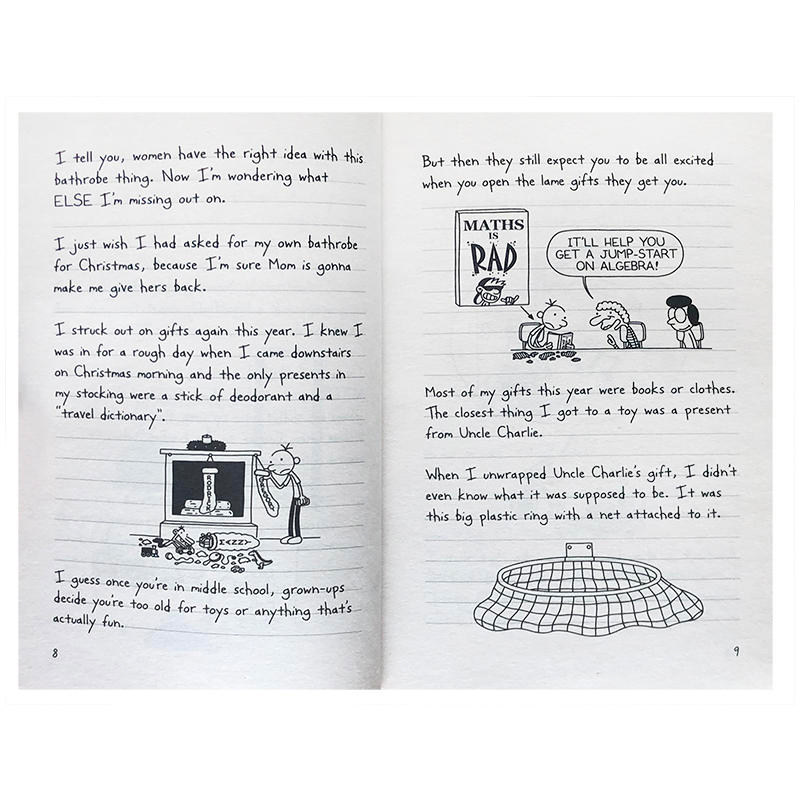 I tell you, women have the right idea with this
bathrobe thing. Now I'm wondering what
ELSE I'm missing out on.
I just wish I had asked for my own bathrobe
for Christmas, because I'm sure Mom is gonna
make me give hers back.
I struck out on gifts again this year. I knew I
was in for a rough day when I came downstairs
on Christmas morning and the only presents in
my stocking were a stick of deodorant and a
"travel dictionary".
RODRICK
I guess once you're in middle school, grown-ups
decide you're too old for toys or anything that's
actually fun.
8
But then they still expect you to be all excited
when you open the lame gifts they get you.
MATHS
IS
RAD
IT'LL HELP YOU
GET A JUMP-START
ON ALGEBRA!
Most of my gifts this year were books or clothes.
The closest thing I got to a toy was a present
from Uncle Charlie.
When I unwrapped Uncle Charlie's gift, I didn't
even know what it was supposed to be. It was
this big plastic ring with a net attached to it.
9